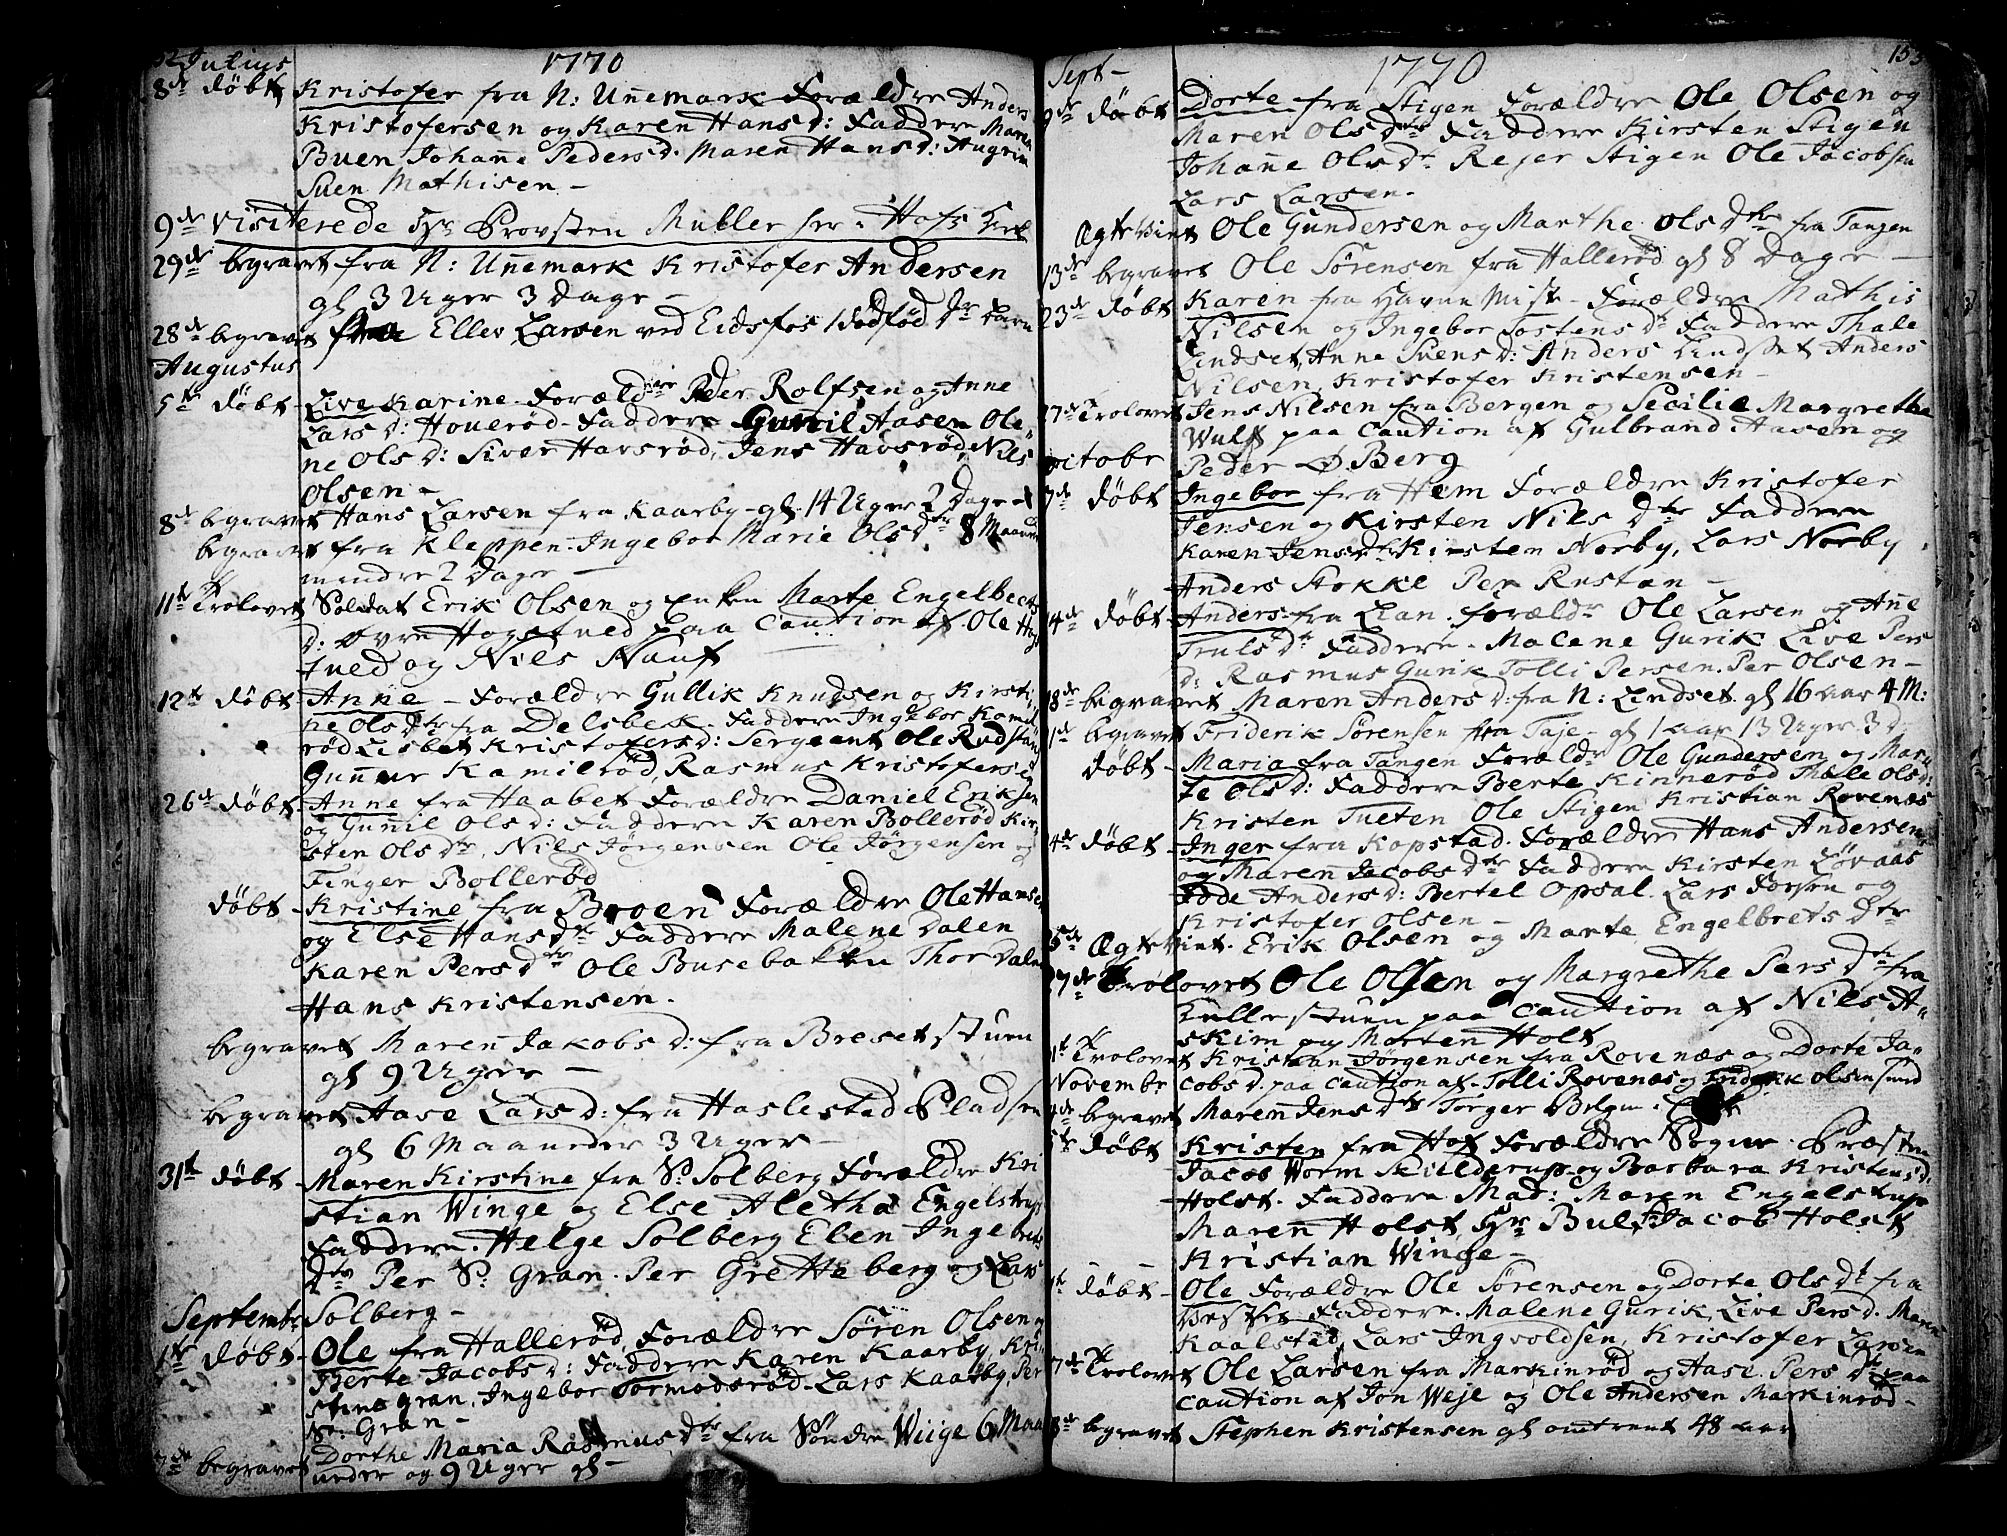 Julius 1770
8de døbt Kristofer fra N: Unnemark Forældre Anders
Kristofersen og Karen Hans D: Faddere Maren
Buen Johanne Peders D. Maren Hans D: Augrim
Suen Mathisen –
9de visiterede Hr Provsten Muller her i Hofs Kirk
29de begravet fra N: Unnemark Kristofer Andersen
gl 3 Uger 3 Dage –
28de begravet fra Ellev Larsen ved Eidsfos 1 dødfød Dr barn
Augustus
5te døbt – Live Karine Forældre Peder Rolfsen og Anne
Lars D: Houerød – Faddere Gunnil Aasen Ole
ne Ols D: Siver Havsrød, Jens Havsrød, Nils
Olsen –
8de begravet Hans Larsen fra Kaarby – gl. 14 Uger 2 Dage –
begravet fra Kleppen Ingebor Marie Ols Dtr 8 Maaneder
mindre 2 Dage –
11te Trolovet Soldat Erik Olsen og Enken Marte Engelbrects
D: Øvre Hogstued paa Caution af Ole Hog
stued og Nils Nauf
12te døbt – Anne – Forældre Gullik Knudsen og Kirsti
ne Ols Dtr fra Delebek. Faddere Ingebor Kamil
rød Lisbet Kristofers D: Sergeant Ole Rudstan
Gunnar Kamilrød, Rasmus Kristofersen
26de døbt – Anne fra Haabet Forældre Daniel Eriksen
og Gunnil Ols D: Faddere Karen Bollerød Kir
sten Ols Dtr, Nils Jørgensen Ole Jørgensen og
Finger Bollerød
døbt – Kristine fra Broen Forældre Ole Hansen
og Else Hans Dtr Faddere Malene Dalen
Karen Pers Dtr Ole Busebakken Thor Dalen
Hans Kristensen.
begravet Maren Jakobs D: fra Bresetstuen
gl 9 Uger –
begravet Aase Lars D: fra Haslestad Pladsen
gl 6 Maaneder 3 Uger –
31te døbt – Maren Kirstine fra S: Solberg Forældre Kri
stian Winge og Else Aletha Engelstrup
Faddere. Helge Solberg Elen Ingebrets
Dtr Per S: Gran. Per Gretteberg og Lars
Solberg –
Septembr
1te døbt – Ole fra Hallerød, Forældre Søren Olsen og
Berte Jacobs D: Faddere Karen Kaarby, Kri
stine gran, Ingebor Tormodsrød – Lars Kaarby, Per
Nr. Gran –
7de begravet Dorthe Maria Rasmus Dtr fra Søndre Wiige 6 Maa
neder og 9 Uger gl –
Sept – 1770 153
9de døbt Dorte fra Stigen Forældre Ole Olsen og
Maren Ols Dtr Faddere Kirsten Stigen
Johanne Ols Dtr Rejer Stigen Ole Jacobsen
Lars Larsen.
Ægteviet Ole Gundersen og Marthe Ols Dtr fra Tangen
13de begravet Ole Sørensen fra Hallerød gl 8 Dage –
23de døbt Karen fra Havne Mist – Forældre Mathis
Nilsen og Ingebor Tostens Dtr Faddere Thale
Lindset, Anne Suens D: Anders Lindset Anders
Nilsen, Kristofer Kristensen –
27de Trolovet Jens Nilsen fra Bergen og Secilie Margrethe
Wulf paa Caution af Gulbrand Aasen og
Peder Ø. Berg
Octobr
7de døbt Ingebor fra Hem Forældre Kristofer
Jensen og Kirsten Nils Dtr Faddere
Karen Jens Dtr Kirsten Norby, Lars Norby
Anders Stokke Per Rustan –
14de døbt – Anders fra Lian. Forældr Ole Larsen og Anne
Truls Dtr Faddere – Malene Gurik Live Pers
D: Rasmus Gurik Tolli Persen. Per Olsen –
18de begravet Maren Anders D: fra N: Lindset gl 16 aar 4 M:
begravet Friderik Sørensen fra Taje – gl 1 aar 13 Uger 3 D
døbt – Maria fra Tangen Forældr Ole Gundersen og Mar
te Ols D: Faddere Berte Kinnerød Thale Ols D:
Kristen Tueten Ole Stigen Kristian Rovenæs
4de døbt – Inger fra Kopstad. Forældre Hans Andersen
og Maren Jacobs Dtr Faddere Kirsten Løvaas
Fode Anders D: Bertel Opsal Lars Forsen og
Kristofer Olsen –
Ægteviet. Erik Olsen og Marte Engelbrets Dtr
27de Trolovet Ole Olsen og Margrethe Pers Dtr fra
Hullestuen paa Caution af Nils A
skim og Morten Holt
1te Trolovet Kristian Jørgensen fra Rovenæs og Dorte Ja
Novembr cobs D. paa Caution af Tolli Rovenæs og Friderik Olsen smed
begravet Maren Jens Dtr Torger
døbt – Kristen fra Hof Forældre Sogne Præsten
Jacob Worm Skilderup og Barbara Kristens D.
Holst. Faddere Mad: Maren Engelstrup
Maren Holst, Hr Bull, Jacob Holst
Kristian Winge –
døbt – Ole Forældre Ole Sørensen og Dorte Ols Dt fra
Faddere. Malene Gurik, Live Pers D. Maren
Kaalstad, Lars Ingvoldsen, Kristofer Larsen
17de Trolovet Ole Larsen fra Markinrød og Aase Pers Dt paa
caution af Jon Weje og Ole Andersen Markinrød –
18de begravet Stephen Kristensen gl omtrent 48 aar